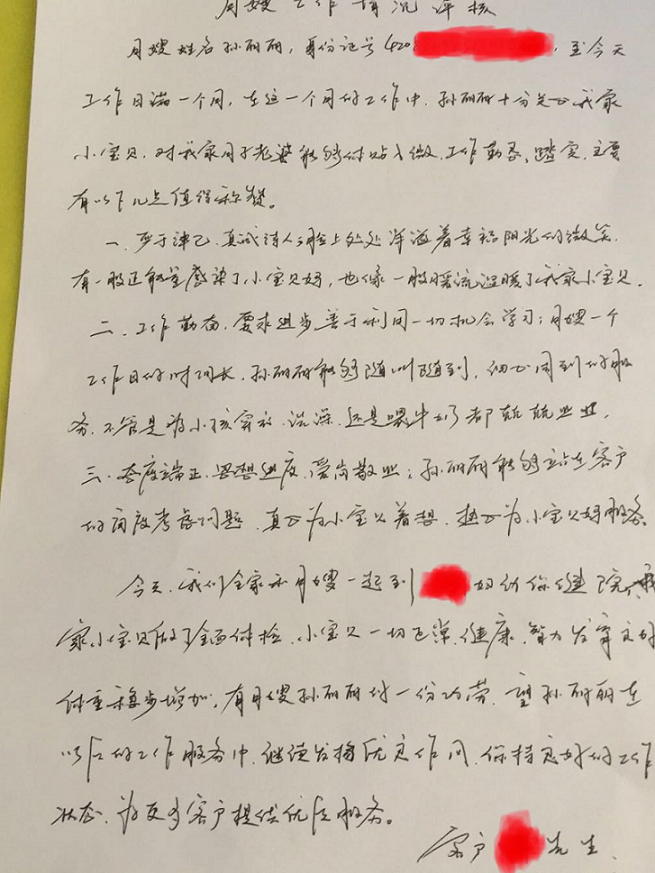 月嫂工作情况评核
月嫂姓名孙丽丽，身份证号420，至今天
工作日满一个月，在这一个月的工作中，孙丽丽十分关心我家
小宝贝，对我家月子老婆能够体贴入微，工作勤恳、踏实，主要
有以下几点值得称赞。
一、严于律己，真诚待人；脸上处处洋溢着幸福阳光的微笑，
有一股正能量感染了小宝贝妈，也像一股暖流温暖了我家小宝贝。
二、工作勤奋，要求进步善于利用一切机会学习；月嫂一个
工作日的时间长，孙丽丽能够随叫随到，细心周到的服
务，不管是为小孩穿衣、洗澡，还是喂牛奶都兢兢业业，
三、态度端正，思想进度，爱岗敬业；孙丽丽能够站在客户
的角度考虑问题，真心为小宝贝着想，热心为小宝贝妈服务。
今天，我们全家和月嫂一起到妇幼保健院，我
家小宝贝做了全面体检，小宝贝一切正常，健康，智力发育良好
体重稳步增加，有月嫂孙丽丽的一份功劳，望孙丽丽在
以后的工作服务中，继续发扬优良作风，保持良好的工作
状态，为更多客户提供优质服务。
客户先生